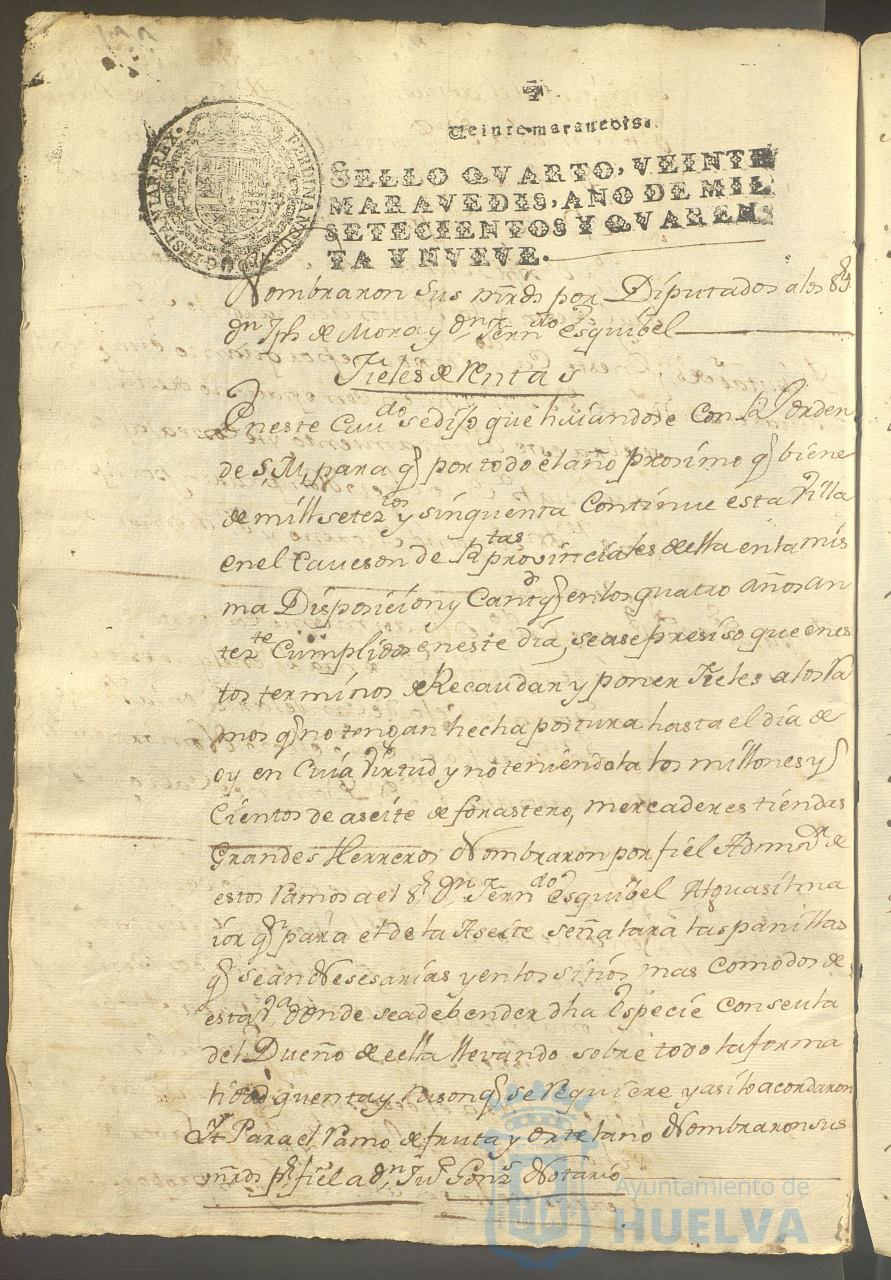 Veinte maravedis.
SELLO QVARTO, VEINTE
MARAVEDIS, AÑO DE MIL
SETECIENTOS Y QVAREN
TA Y NVEVE.
Nombraron sus mrds por Diputados a los SS
Dn Jph de Mora y Dn Ferndo esquibel
Fieles de Rentas
En este Cauildo se dijo que hauiandose Con Rl orden
de S. M. para q por todo el año prosimo q biene
de mill setezos y sinquenta Continue esta Villa
en el Caueson de Rtas provinciales de ella en la mis
ma Disposicion y Cantd q en los quatro años an
tezte Cumplidos en este dia, se ase presiso que en es
tos terminos de Recaudar y poner Fieles a los Ra
mos q no tengan hecha postura hasta el dia de
oy en Cuia Virtud y no teniendola los millones y
Cientos de aseite de forastero, mercaderes tiendas
Grandes Herreros Nombraron por fiel Admor de
estos Ramos a el Sr Dn Ferndo esquibel Alguasil ma
ior qn para el de la Aseite señalara las panillas
q sean Nesesarias y en los sitios mas Comodos de
esta Va donde se a de bender dha Especie Con seuta
del Dueño de ella llevando sobre todo la forma
lidad quenta y Rason q se Requiere y asi lo acordaron
It Para el Ramo de fruta y ortelano Nombraron sus
mrds pr fiel a Dn Jun Gonz Notario
FERDINANDUS VI D G HISPANIAR REX
Ayuntamiento de
HUELVA